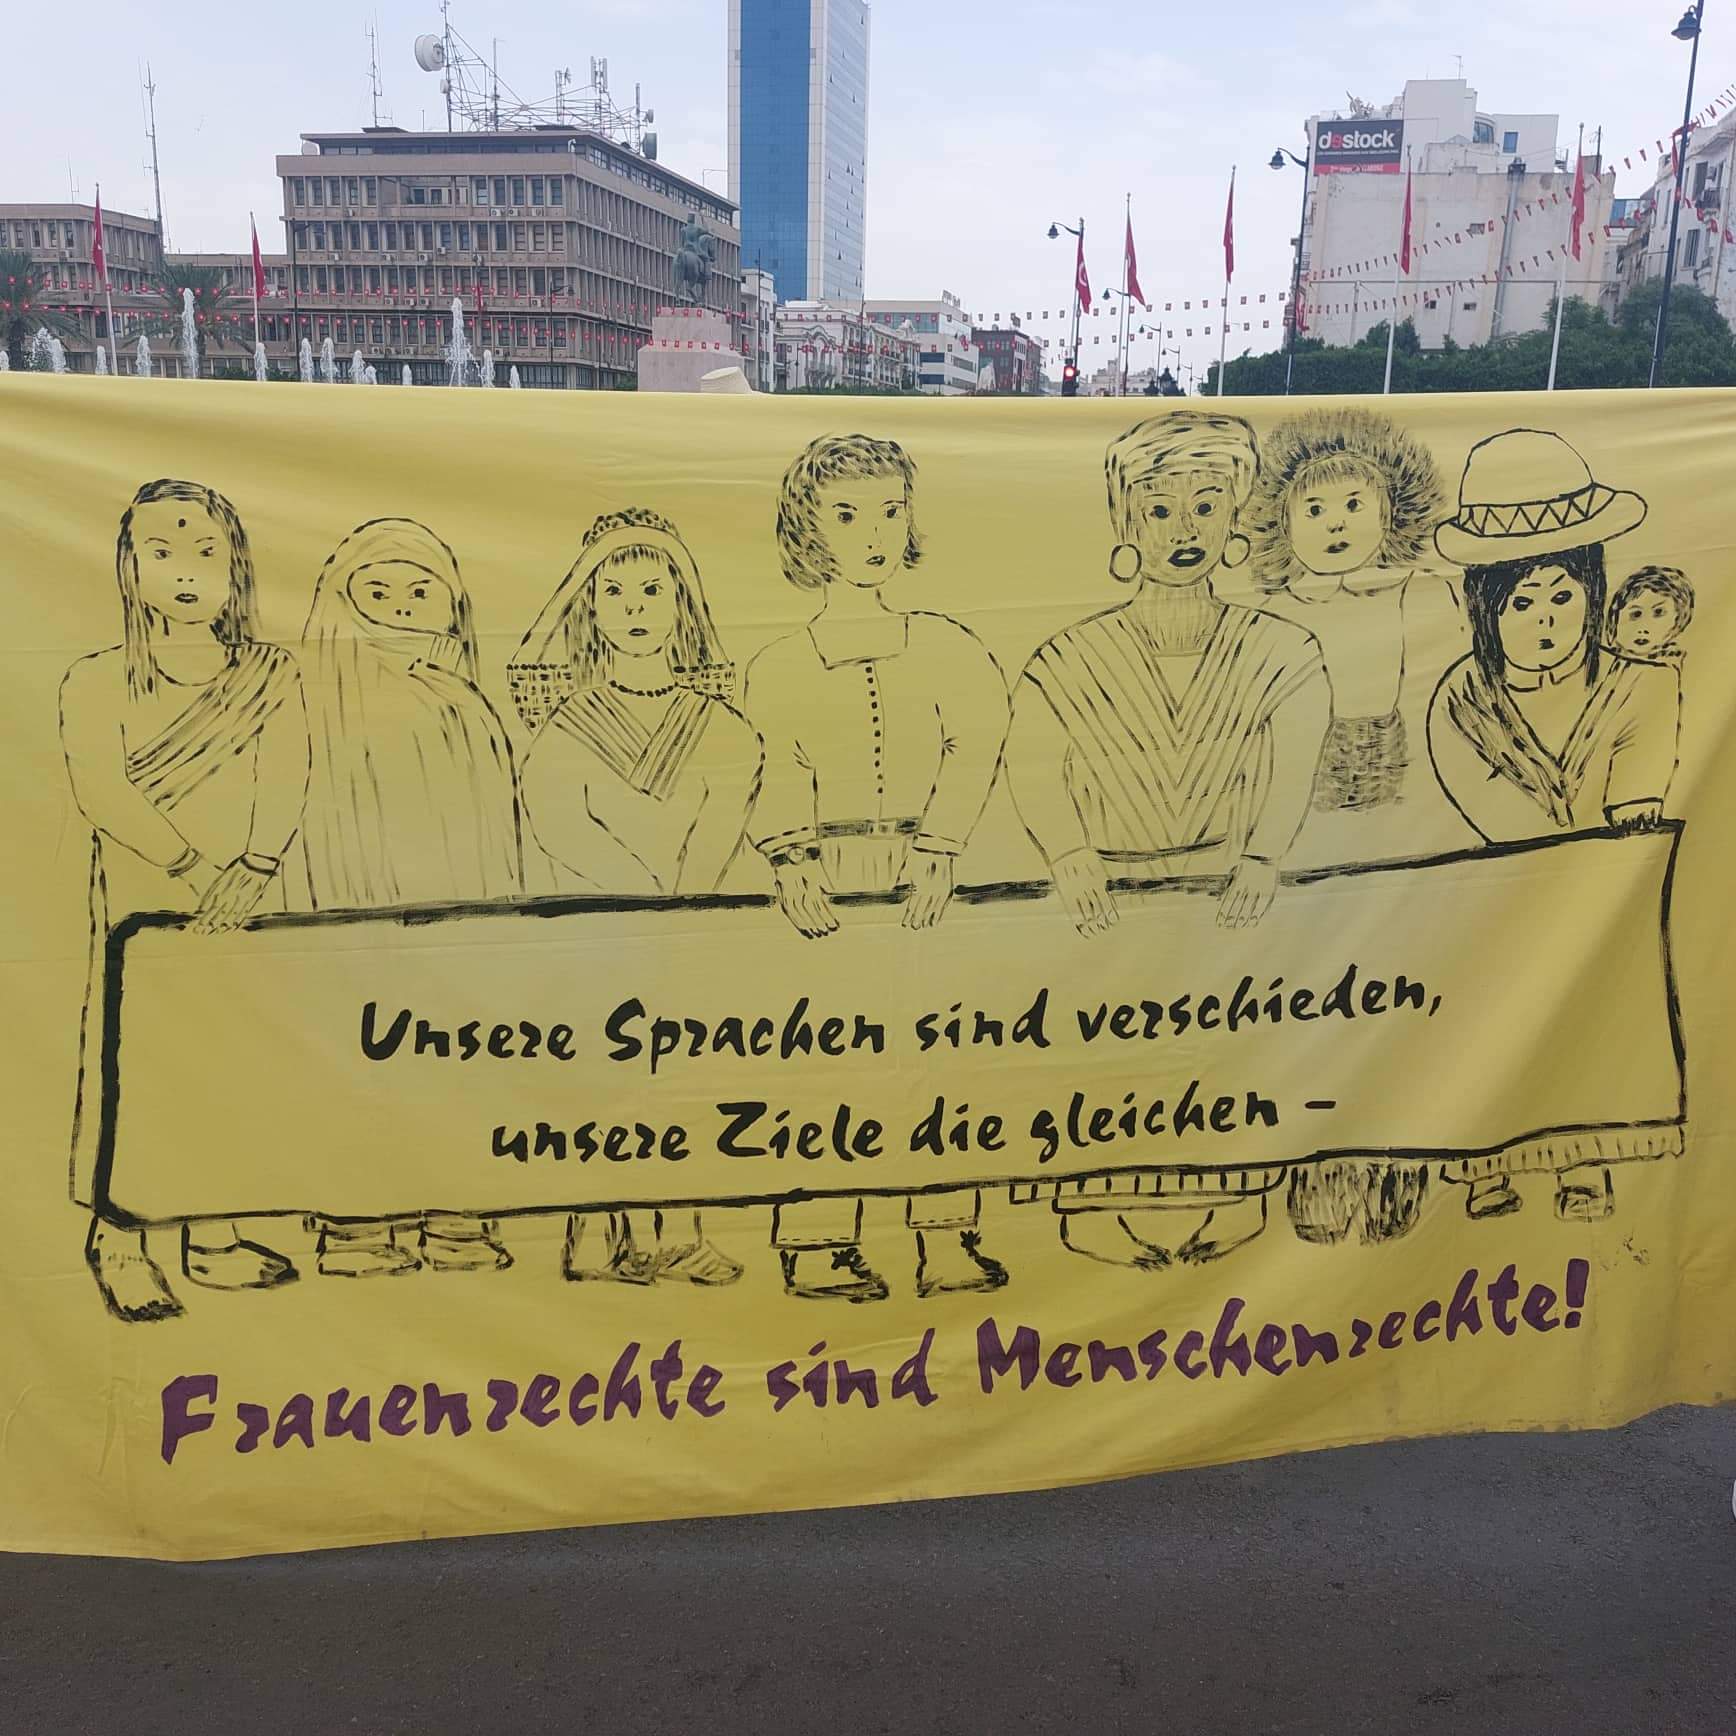 destock
Unsere Sprachen sind verschieden,
unsere Ziele die gleichen –
Frauenrechte sind Menschenrechte!